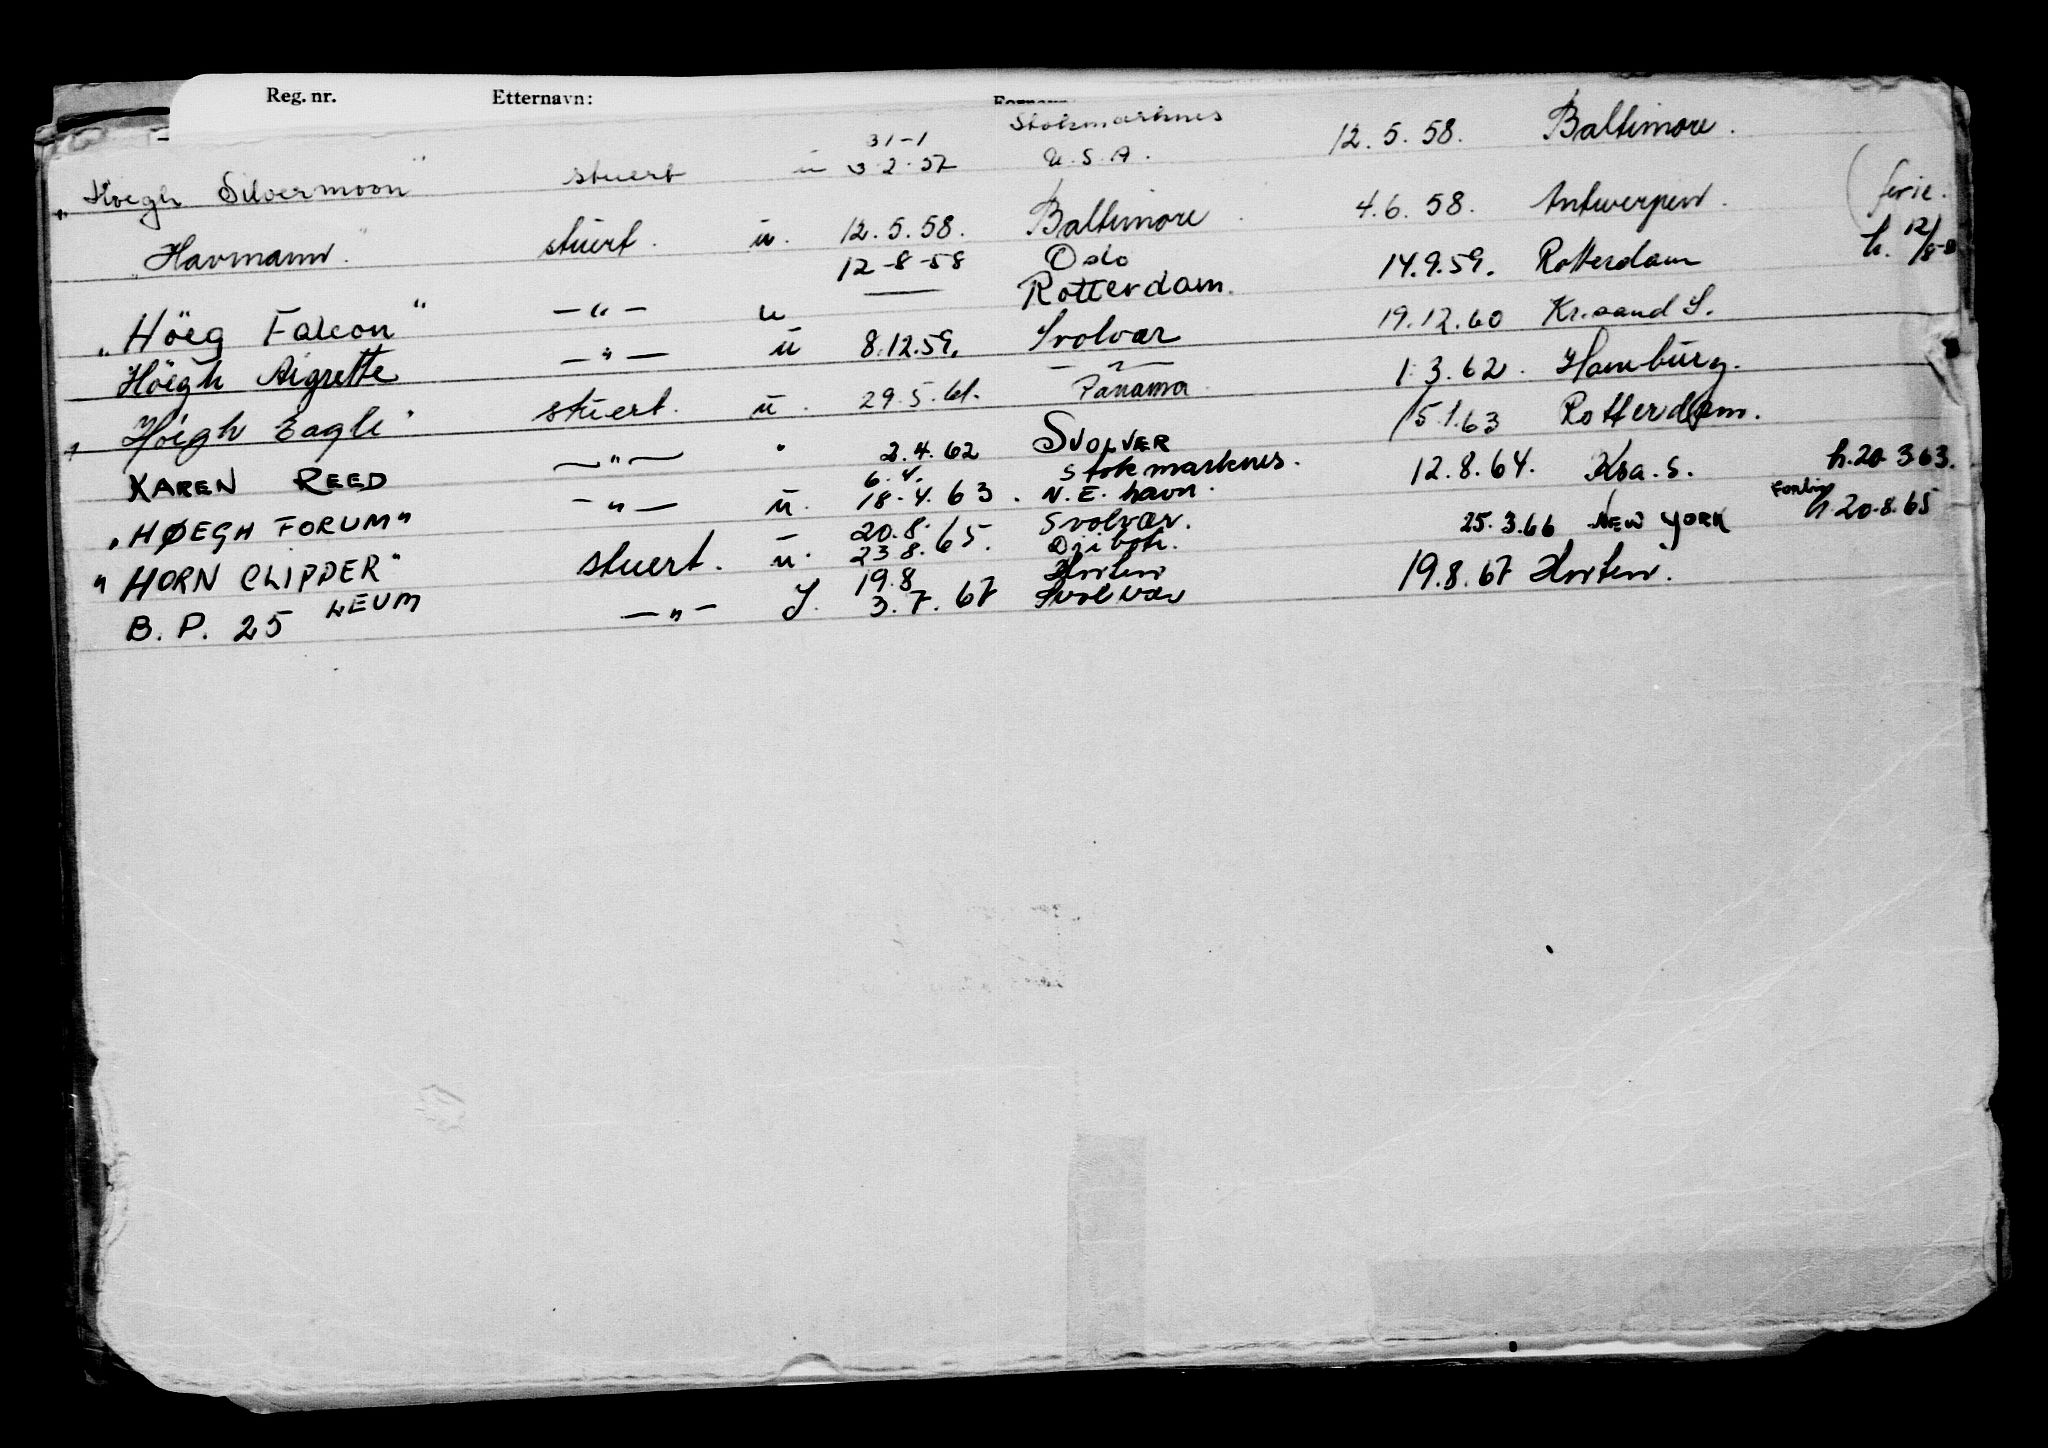 Reg. nr. Etternavn:
31-1 Stokmarknes
„Höegh Silvermoon" stuert u 3.2.57 U.S.A. 12.5.58. Baltimore. (ferie.
„Havmann" stuert. u. 12.5.58. Baltimore. 4.6.58. Antwerpen. h. 12/8-58
12-8-58 Oslo
„Höeg Falcon" —"— u — Rotterdam. 14.9.59. Rotterdam
Höegh Aigrette —"— u 8.12.59. Svolvær 19.12.60 Kr.sand S.
„Höegh Eagle" stuert. u. 29.5.61. Panama. 1.3.62. Hamburg.
KAREN REED —"— " 2.4.62 SVOLVER 15.1.63 Rotterdam.
6.4. Stokmarknes.
„HØEGH FORUM" —"— u. 18.4.63. N.E. havn. 12.8.64. Kra.S. h.20.3.63.
20.8. Svolvær.
" HORN CLIPPER" stuert. u. 23.8.65. Djiboti. 25.3.66 NEW YORK h.20.8.65
19.8 Horten
B.P. 25 —"— J. 3.7.67 Svolvær 19.8.67 Horten.